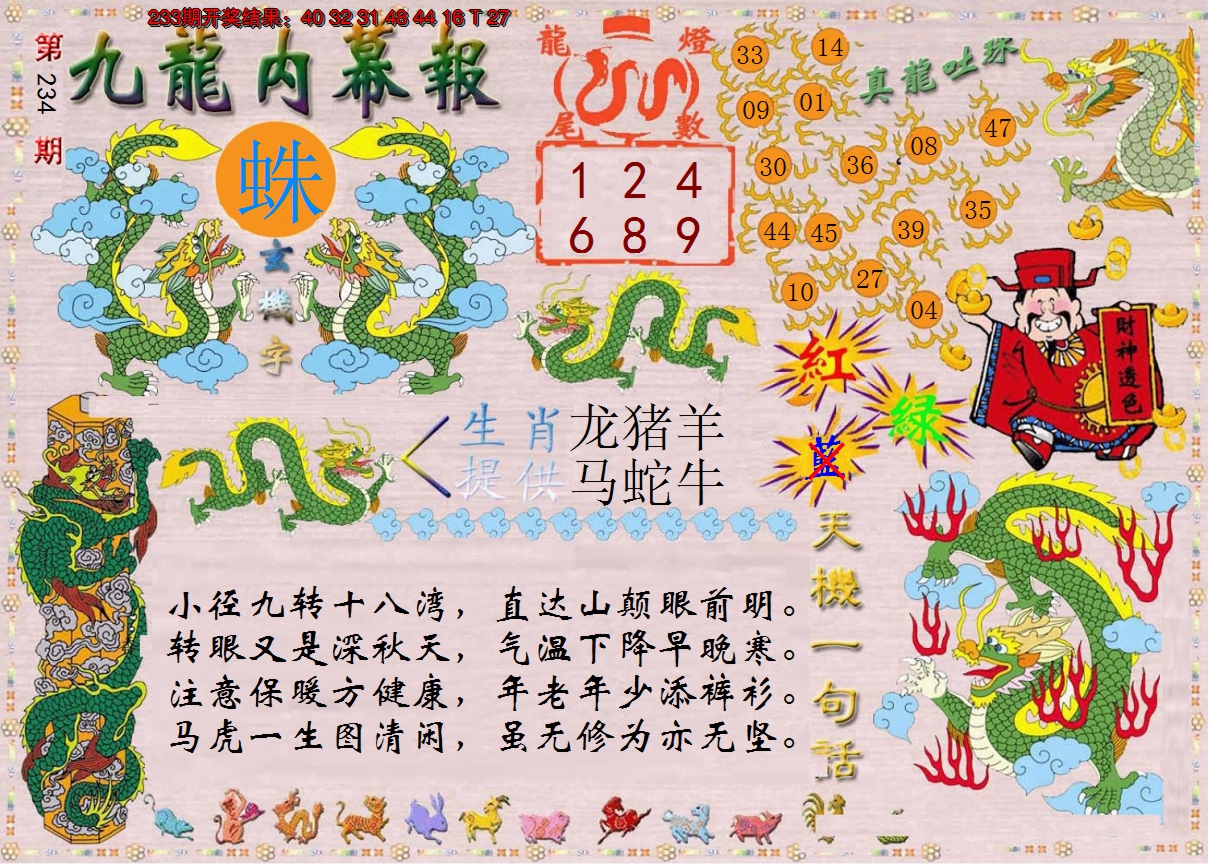 233期开奖结果：40 32 31 48 44 16 T 27
第234期
九龍内幕報
蛛
玄機字
龍燈尾數
1 2 4
6 8 9
真龍吐珠
33
14
09
01
30
36
08
47
44
45
39
35
10
27
04
財神透色
紅
綠
藍
生肖提供
龙猪羊
马蛇牛
天機一句話
小径九转十八湾，直达山颠眼前明。
转眼又是深秋天，气温下降早晚寒。
注意保暖方健康，年老年少添裤衫。
马虎一生图清闲，虽无修为亦无坚。